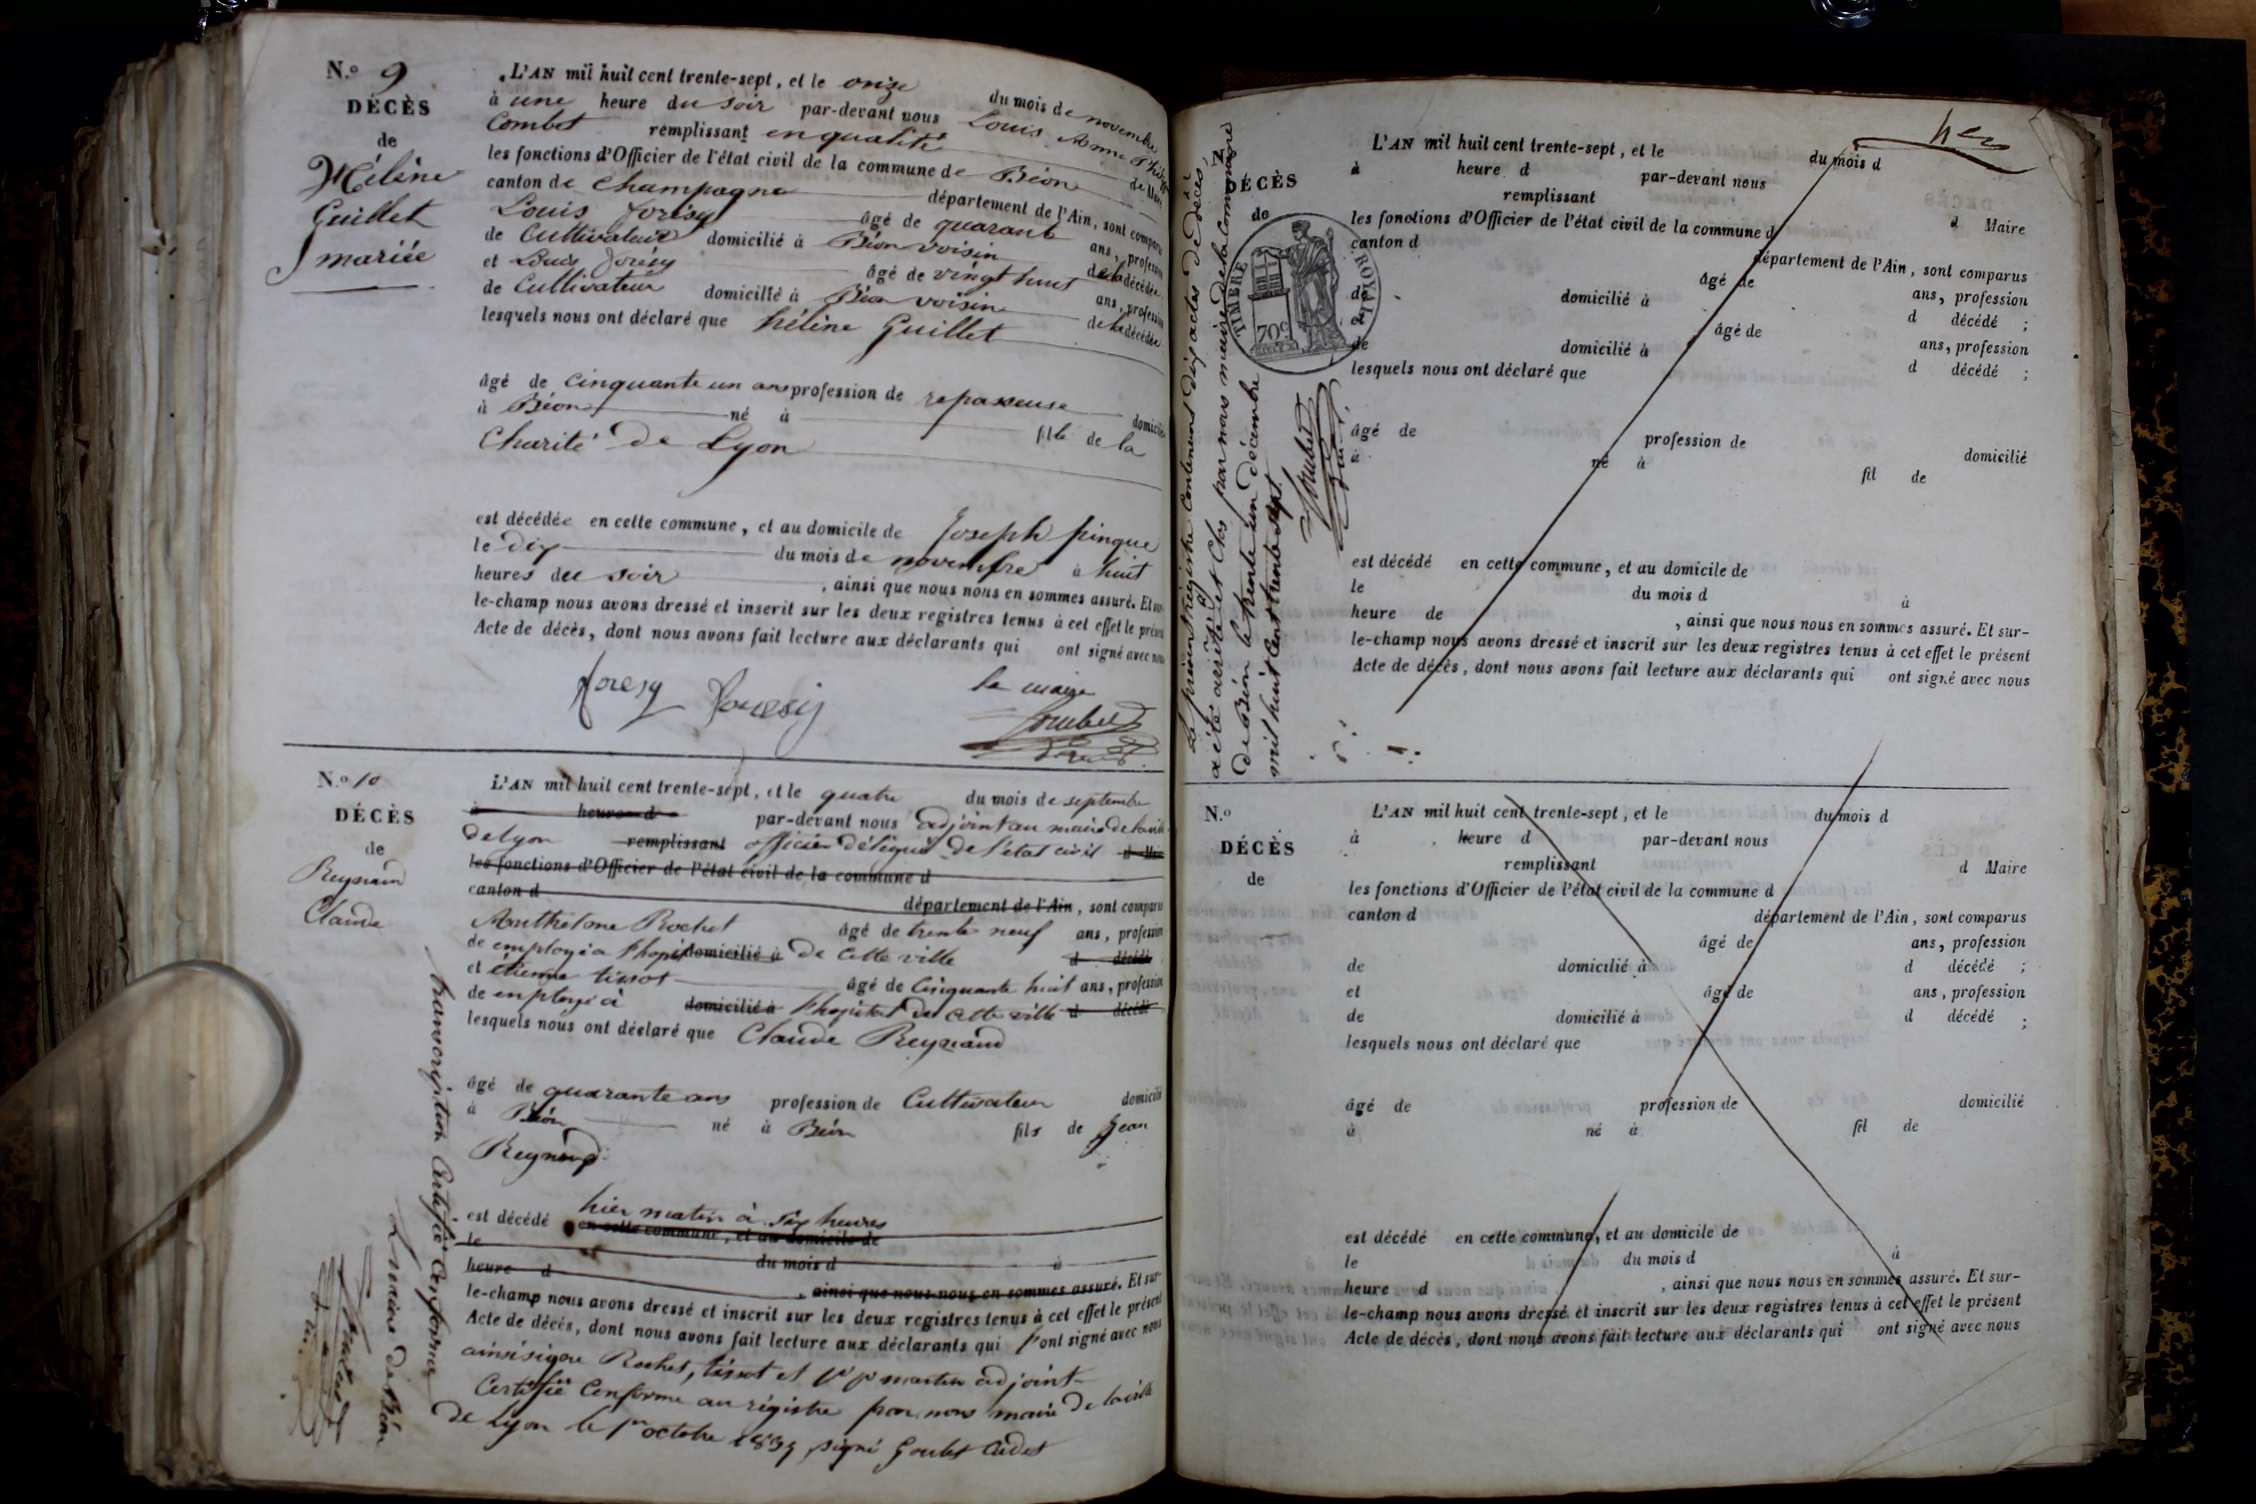 N.º 9
DÉCÈS
de
Hélène
Guillet
mariée
L'AN mil huit cent trente-sept, et le onze du mois de novembre
à une heure du soir par-devant nous Louis Anne
Combet remplissant en qualité de Maire
les fonctions d'Officier de l'état civil de la commune de Béon
canton de Champagne département de l'Ain, sont comparus
Louis âgé de quarante ans, profession
de Cultivateur domicilié à Béon voisin de la décédée
et Louis âgé de vingt huit ans, profession
de Cultivateur domicilié à Béon voisin de la décédée
lesquels nous ont déclaré que hélène Guillet
âgé de cinquante un ans profession de repasseuse domicilié
à Béon né à fille de la
Charité de Lyon
est décédée en cette commune, et au domicile de Joseph pingue
le dix du mois de novembre à huit
heures du soir, ainsi que nous nous en sommes assuré. Et sur-
le-champ nous avons dressé et inscrit sur les deux registres tenus à cet effet le présent
Acte de décès, dont nous avons fait lecture aux déclarants qui ont signé avec nous
le maire
N.º 10
DÉCÈS
de
Reynaud
Claude
L'AN mil huit cent trente-sept, et le quatre du mois de septembre
à heure d par-devant nous adjoint au maire de la ville
de lyon remplissant officier délégué de l'état civil d Maire
les fonctions d'Officier de l'état civil de la commune d
canton d département de l'Ain, sont comparus
Anthelme Rochet âgé de trente neuf ans, profession
de employé a l'hopital domicilié à de cette ville d décédé
et étienne tissot âgé de Cinquante huit ans, profession
de employé à domicilié à l'hopital de cette ville d décédé
lesquels nous ont déclaré que Claude Reynaud
âgé de quarante ans profession de Cultivateur domicilié
à Béon né à Béon fils de Jean
Reynaud
est décédé hier matin à six heures
en cette commune, et au domicile de
le du mois d à
heure d, ainsi que nous nous en sommes assuré. Et sur-
le-champ nous avons dressé et inscrit sur les deux registres tenus à cet effet le présent
Acte de décès, dont nous avons fait lecture aux déclarants qui l'ont signé avec nous
ainsi signe Rochet, tissot et martin adjoint
Certifié Conforme au régistre par nous maire de la ville
de Lyon le 1er octobre signé Cadet
transcription Certifiée Conforme
Le maire de Béon
Le présent régistre Contenant dix actes de décès
a été arrêté et Clos par nous maire de la Commune
de Béon le trente un décembre
mil huit cent trente sept.
TIMBRE ROYAL
70c
DÉCÈS
de
L'AN mil huit cent trente-sept, et le du mois d
à heure d par-devant nous
remplissant d Maire
les fonctions d'Officier de l'état civil de la commune d
canton d département de l'Ain, sont comparus
âgé de ans, profession
de domicilié à d décédé ;
et âgé de ans, profession
de domicilié à d décédé ;
lesquels nous ont déclaré que
âgé de profession de domicilié
à né à fil de
est décédé en cette commune, et au domicile de
le du mois d à
heure de, ainsi que nous nous en sommes assuré. Et sur-
le-champ nous avons dressé et inscrit sur les deux registres tenus à cet effet le présent
Acte de décès, dont nous avons fait lecture aux déclarants qui ont signé avec nous
N.º
DÉCÈS
de
L'AN mil huit cent trente-sept, et le du mois d
à heure d par-devant nous
remplissant d Maire
les fonctions d'Officier de l'état civil de la commune d
canton d département de l'Ain, sont comparus
âgé de ans, profession
de domicilié à d décédé ;
et âgé de ans, profession
de domicilié à d décédé ;
lesquels nous ont déclaré que
âgé de profession de domicilié
à né à fil de
est décédé en cette commune, et au domicile de
le du mois d à
heure d, ainsi que nous nous en sommes assuré. Et sur-
le-champ nous avons dressé et inscrit sur les deux registres tenus à cet effet le présent
Acte de décès, dont nous avons fait lecture aux déclarants qui ont signé avec nous